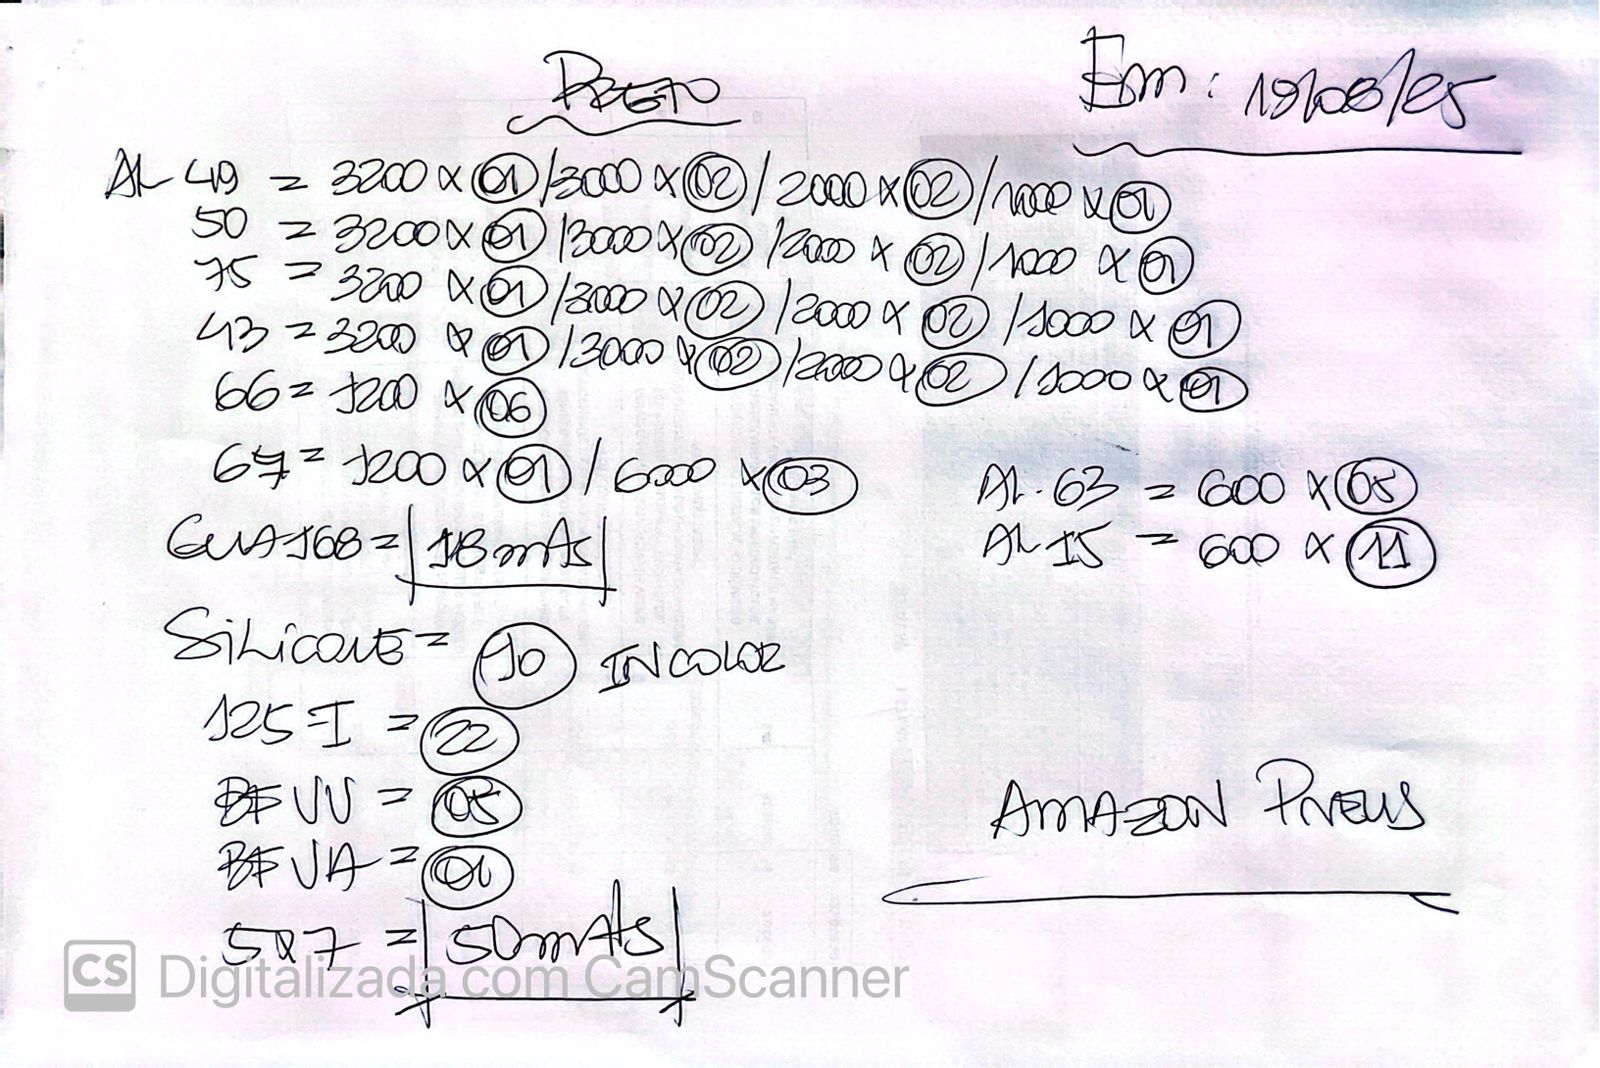 PRETO
Em: 19/08/25
AL 49 = 3200 x 01 / 3000 x 02 / 2000 x 02 / 1000 x 01
50 = 3200 x 01 / 3000 x 02 / 2000 x 02 / 1000 x 01
75 = 3200 x 01 / 3000 x 02 / 2000 x 02 / 1000 x 01
43 = 3200 x 01 / 3000 x 02 / 2000 x 02 / 1000 x 01
66 = 1200 x 06
67 = 1200 x 01 / 6000 x 03
AL. 63 = 600 x 05
AL 15 = 600 x 11
GUA 168 = 18 mts
SILICONE = 10 INCOLOR
125-I = 22
BF VV = 05
BF VA = 01
5x7 = 50 mts
AMAZON PNEUS
CS Digitalizada com CamScanner